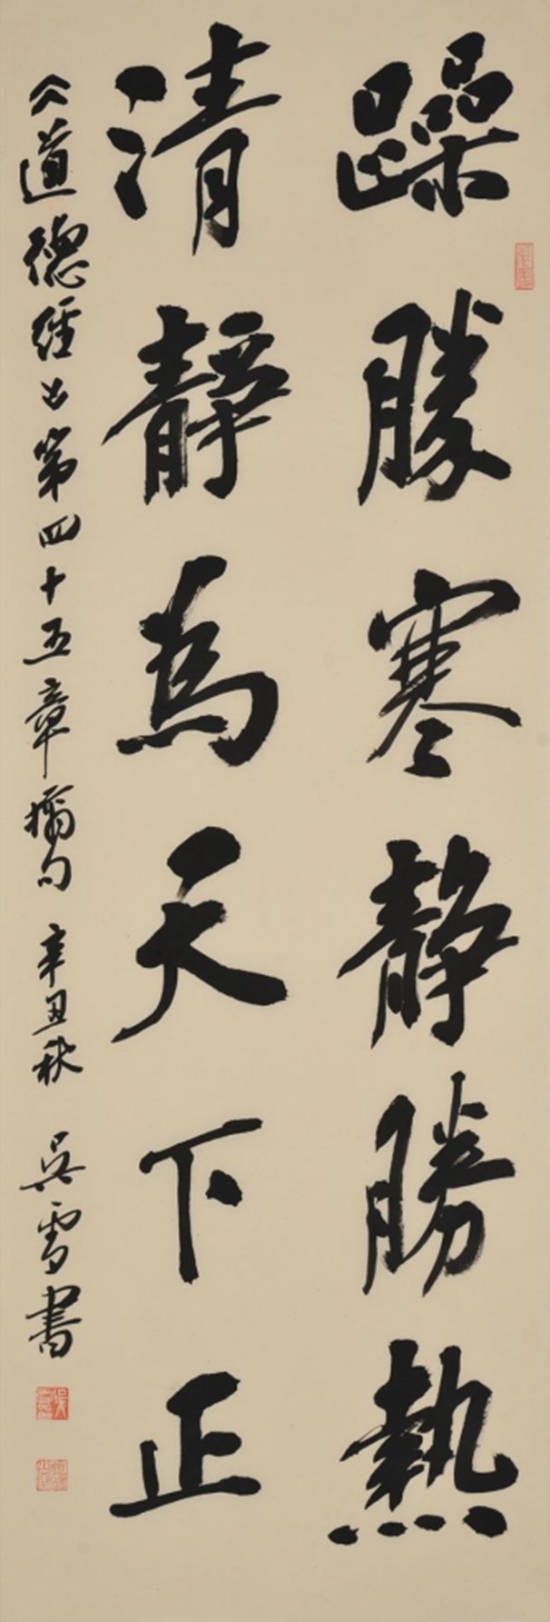 躁勝寒静勝熱
清靜為天下正
《道德經》第四十五章摘句 辛丑秋 吴雪書